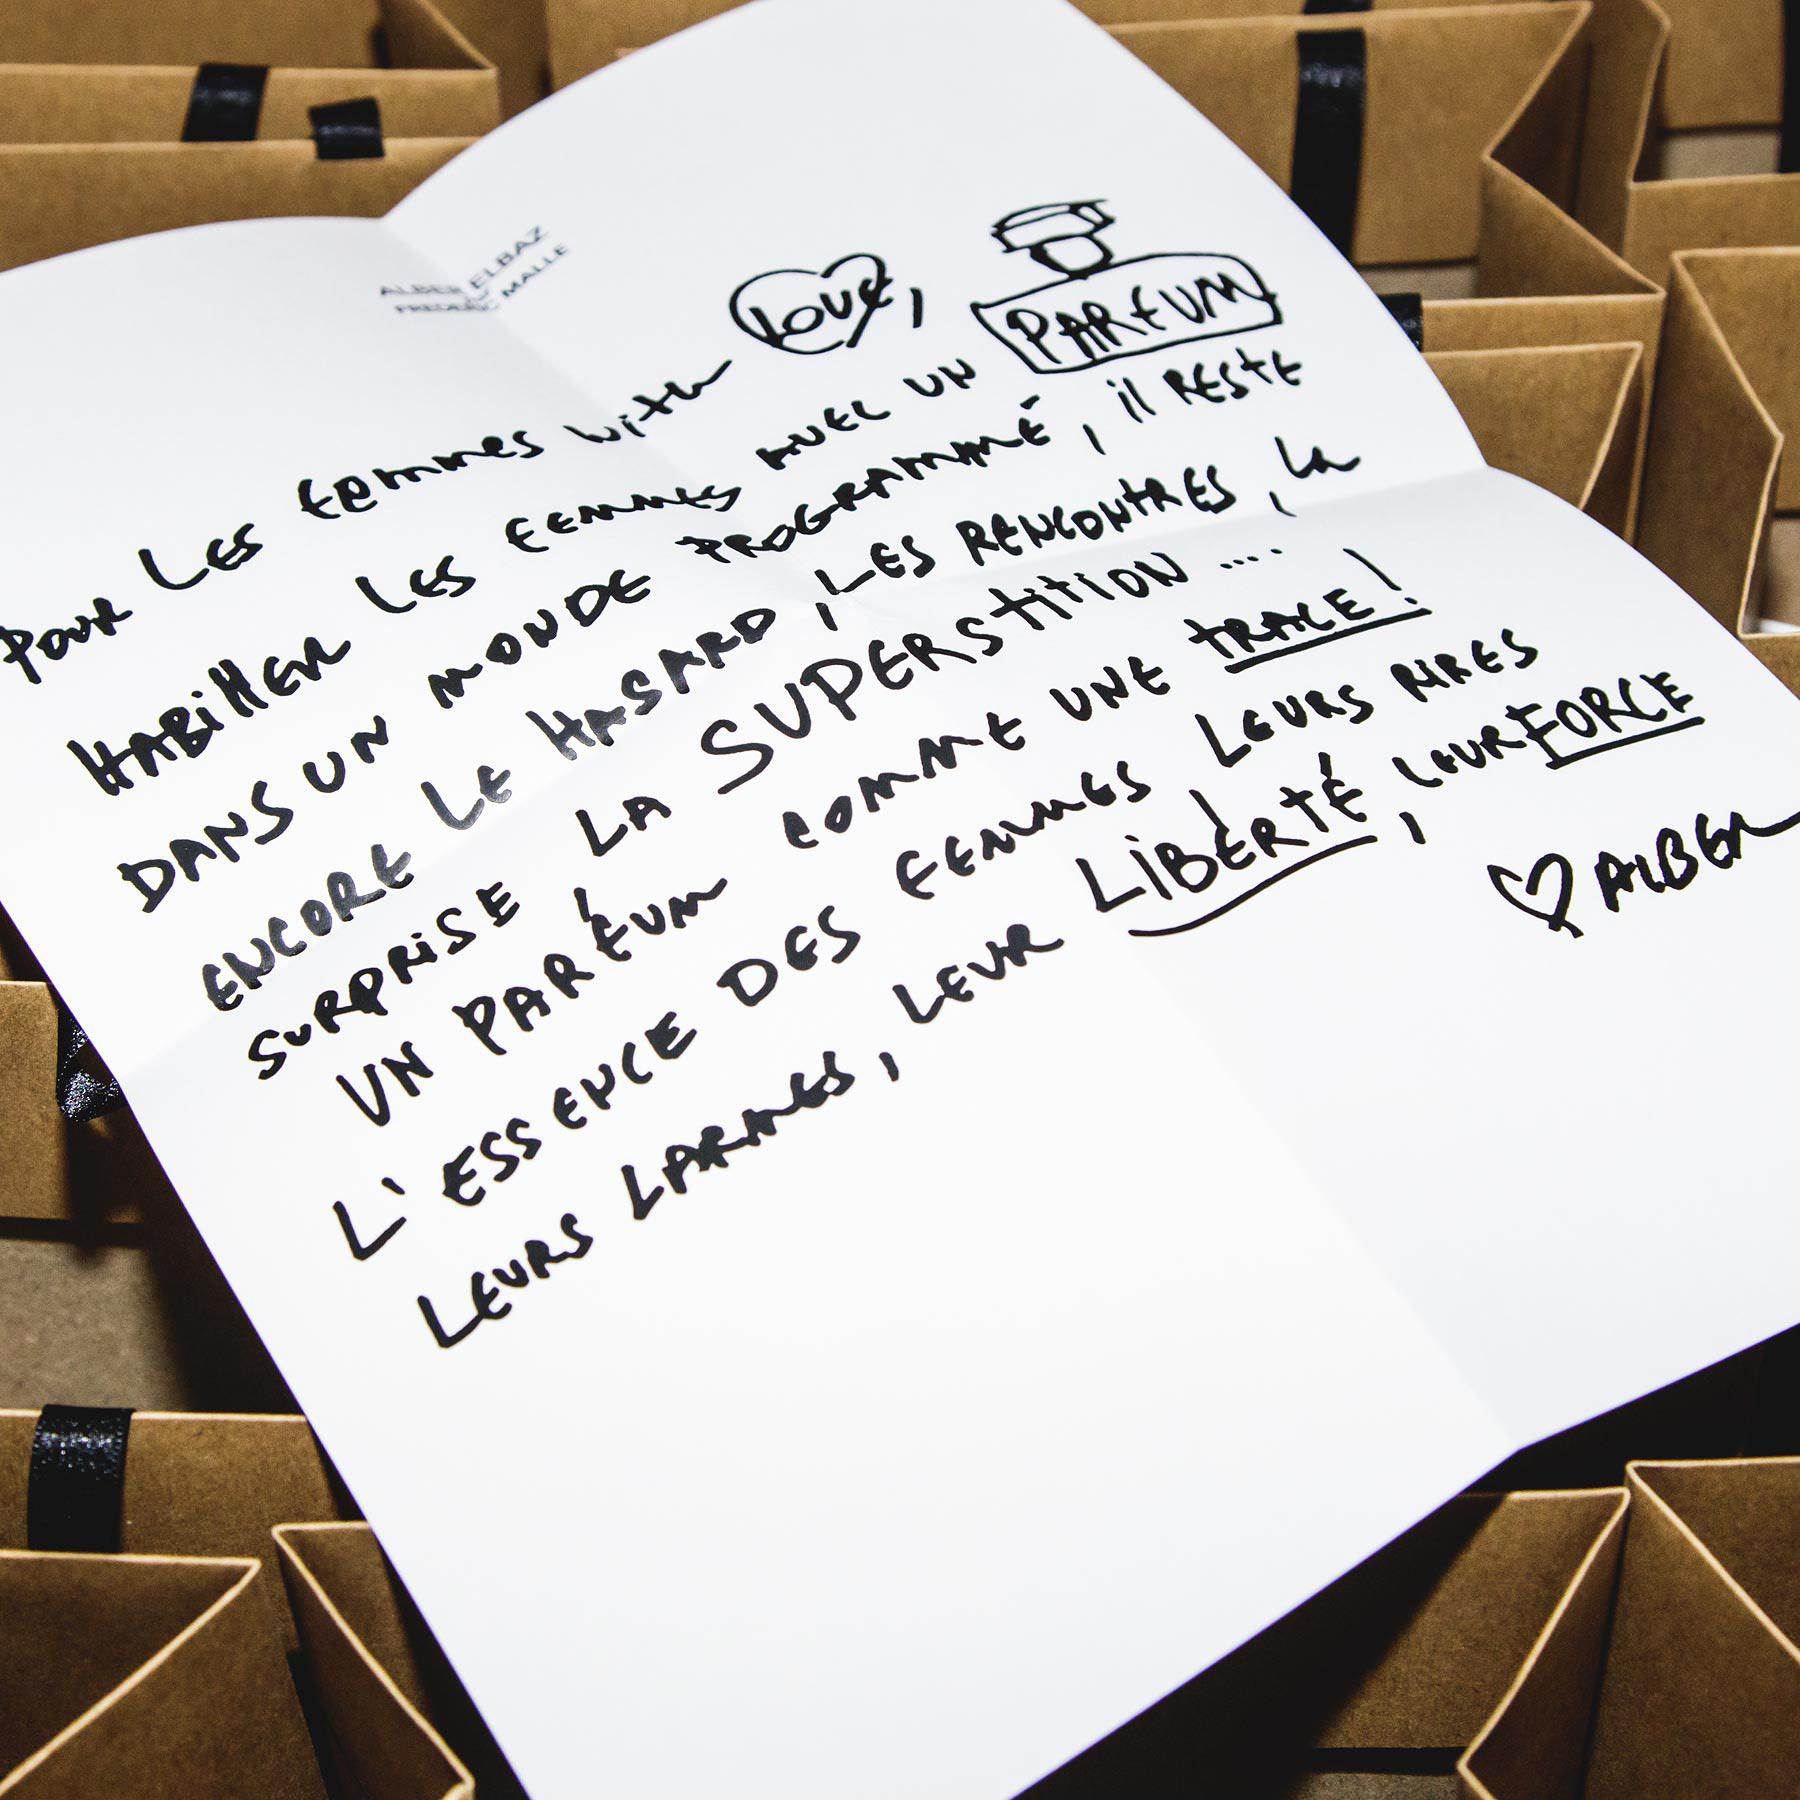 ALBER ELBAZ
FREDERIC MALLE
POUR LES femmes with LOVE,
HABILLER LES FEMMES AVEC UN PARFUM
DANS UN MONDE PROGRAMMÉ, il RESTE
ENCORE LE HASARD, LES RENCONTRES, LA
SURPRISE LA SUPERSTITION ....
UN PARFUM COMME UNE TRACE!
L'ESSENCE DES FEMMES LEURS RIRES
LEURS LARMES, LEUR LIBERTÉ, LEUR FORCE
ALBER